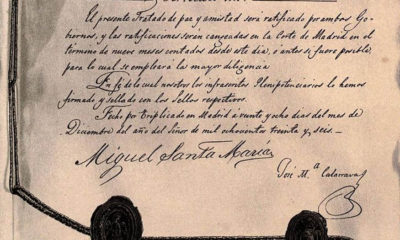 El presente Tratado de paz y amistad será ratificado por ambos Go-
biernos, y las ratificaciones serán canjeadas en la Corte de Madrid en el
término de nueve meses contados desde este día, o antes si fuere posible,
para lo cual se empleará la mayor diligencia
En fé de lo cual nosotros los infrascritos Plenipotenciarios lo hemos
firmado y sellado con los Sellos respectivos.
Fecho por triplicado en Madrid a veinte y ocho días del mes de
Diciembre del año del Señor de mil ochocientos treinta y seis.
Miguel Santa María
José M.a Calatrava